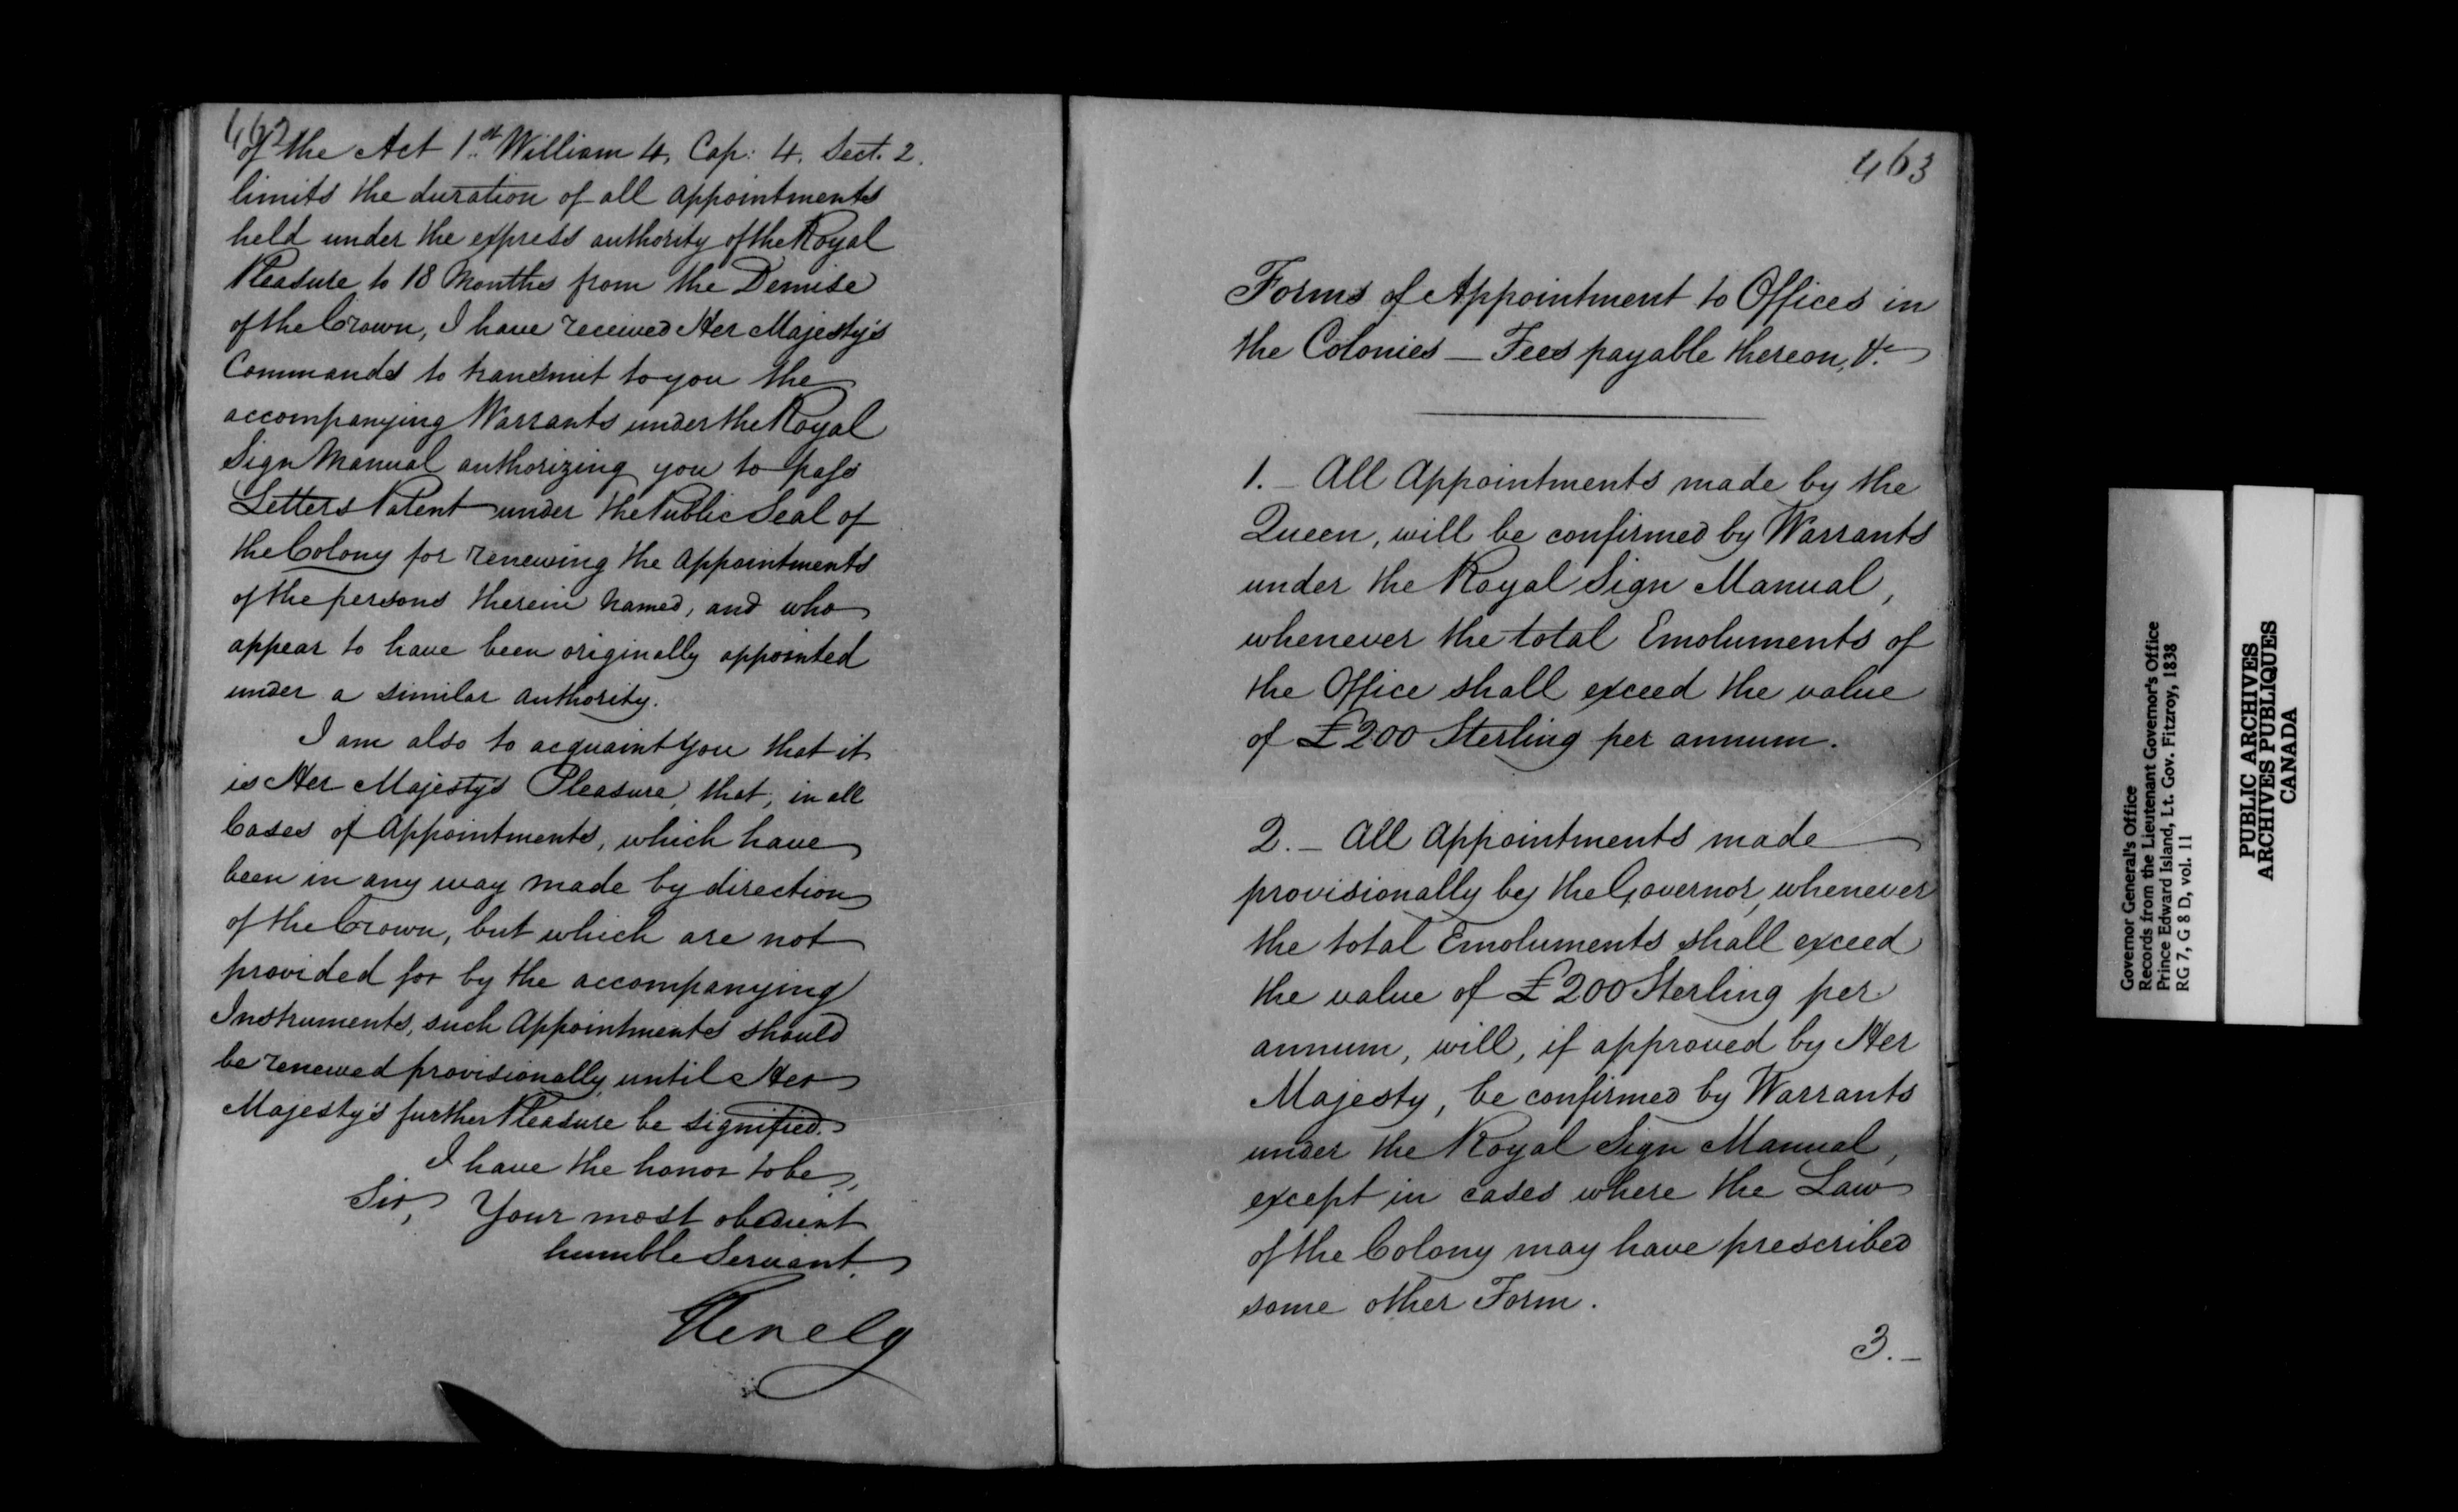 462
of the Act 1st William 4, Cap: 4, Sect. 2.
limits the duration of all appointments
held under the express authority of the Royal
Pleasure to 18 Months from the Demise
of the Crown, I have received Her Majesty's
Commands to transmit to you the
accompanying Warrants under the Royal
Sign Manual authorizing you to pass
Letters Patent under the Public Seal of
the Colony for renewing the appointments
of the persons therein named, and who
appear to have been originally appointed
under a similar authority.
I am also to acquaint you that it
is Her Majesty's Pleasure, that, in all
Cases of Appointments, which have
been in any way made by direction
of the Crown, but which are not
provided for by the accompanying
Instruments, such Appointments should
be renewed provisionally until Her
Majesty's further Pleasure be signified.
I have the honor to be,
Sir, Your most obedient
humble Servant,
Glenelg
463
Forms of Appointment to Offices in
the Colonies — Fees payable thereon, &c
1. — All Appointments made by the
Queen, will be confirmed by Warrants
under the Royal Sign Manual,
whenever the total Emoluments of
the Office shall exceed the value
of £200 Sterling per annum.
2. — All Appointments made
provisionally by the Governor, whenever
the total Emoluments shall exceed
the value of £200 Sterling per
annum, will, if approved by Her
Majesty, be confirmed by Warrants
under the Royal Sign Manual,
except in cases where the Law
of the Colony may have prescribed
some other Form.
3. —
Governor General's Office
Records from the Lieutenant Governor's Office
Prince Edward Island, Lt. Gov. Fitzroy, 1838
RG 7, G 8 D, vol. 11
PUBLIC ARCHIVES
ARCHIVES PUBLIQUES
CANADA